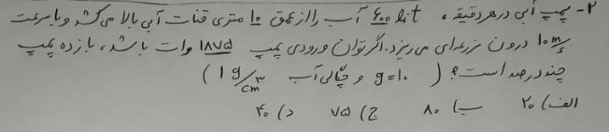 ۲- پمپ آبی در هر دقیقه، ۶۰۰ lit آب را از عمق ۱۰ متری قنات آبی بالا می کشد و با سرعت
۱۰ m/s درون مزرعه ای می ریزد. اگر توان ورودی پمپ ۱۸۷۵ وات باشد، بازده پمپ
چند درصد است؟ ( g=۱۰ و چگالی آب ۱ g/cm³ )
الف) ۲۰ ب) ۸۰ ج) ۷۵ د) ۴۰